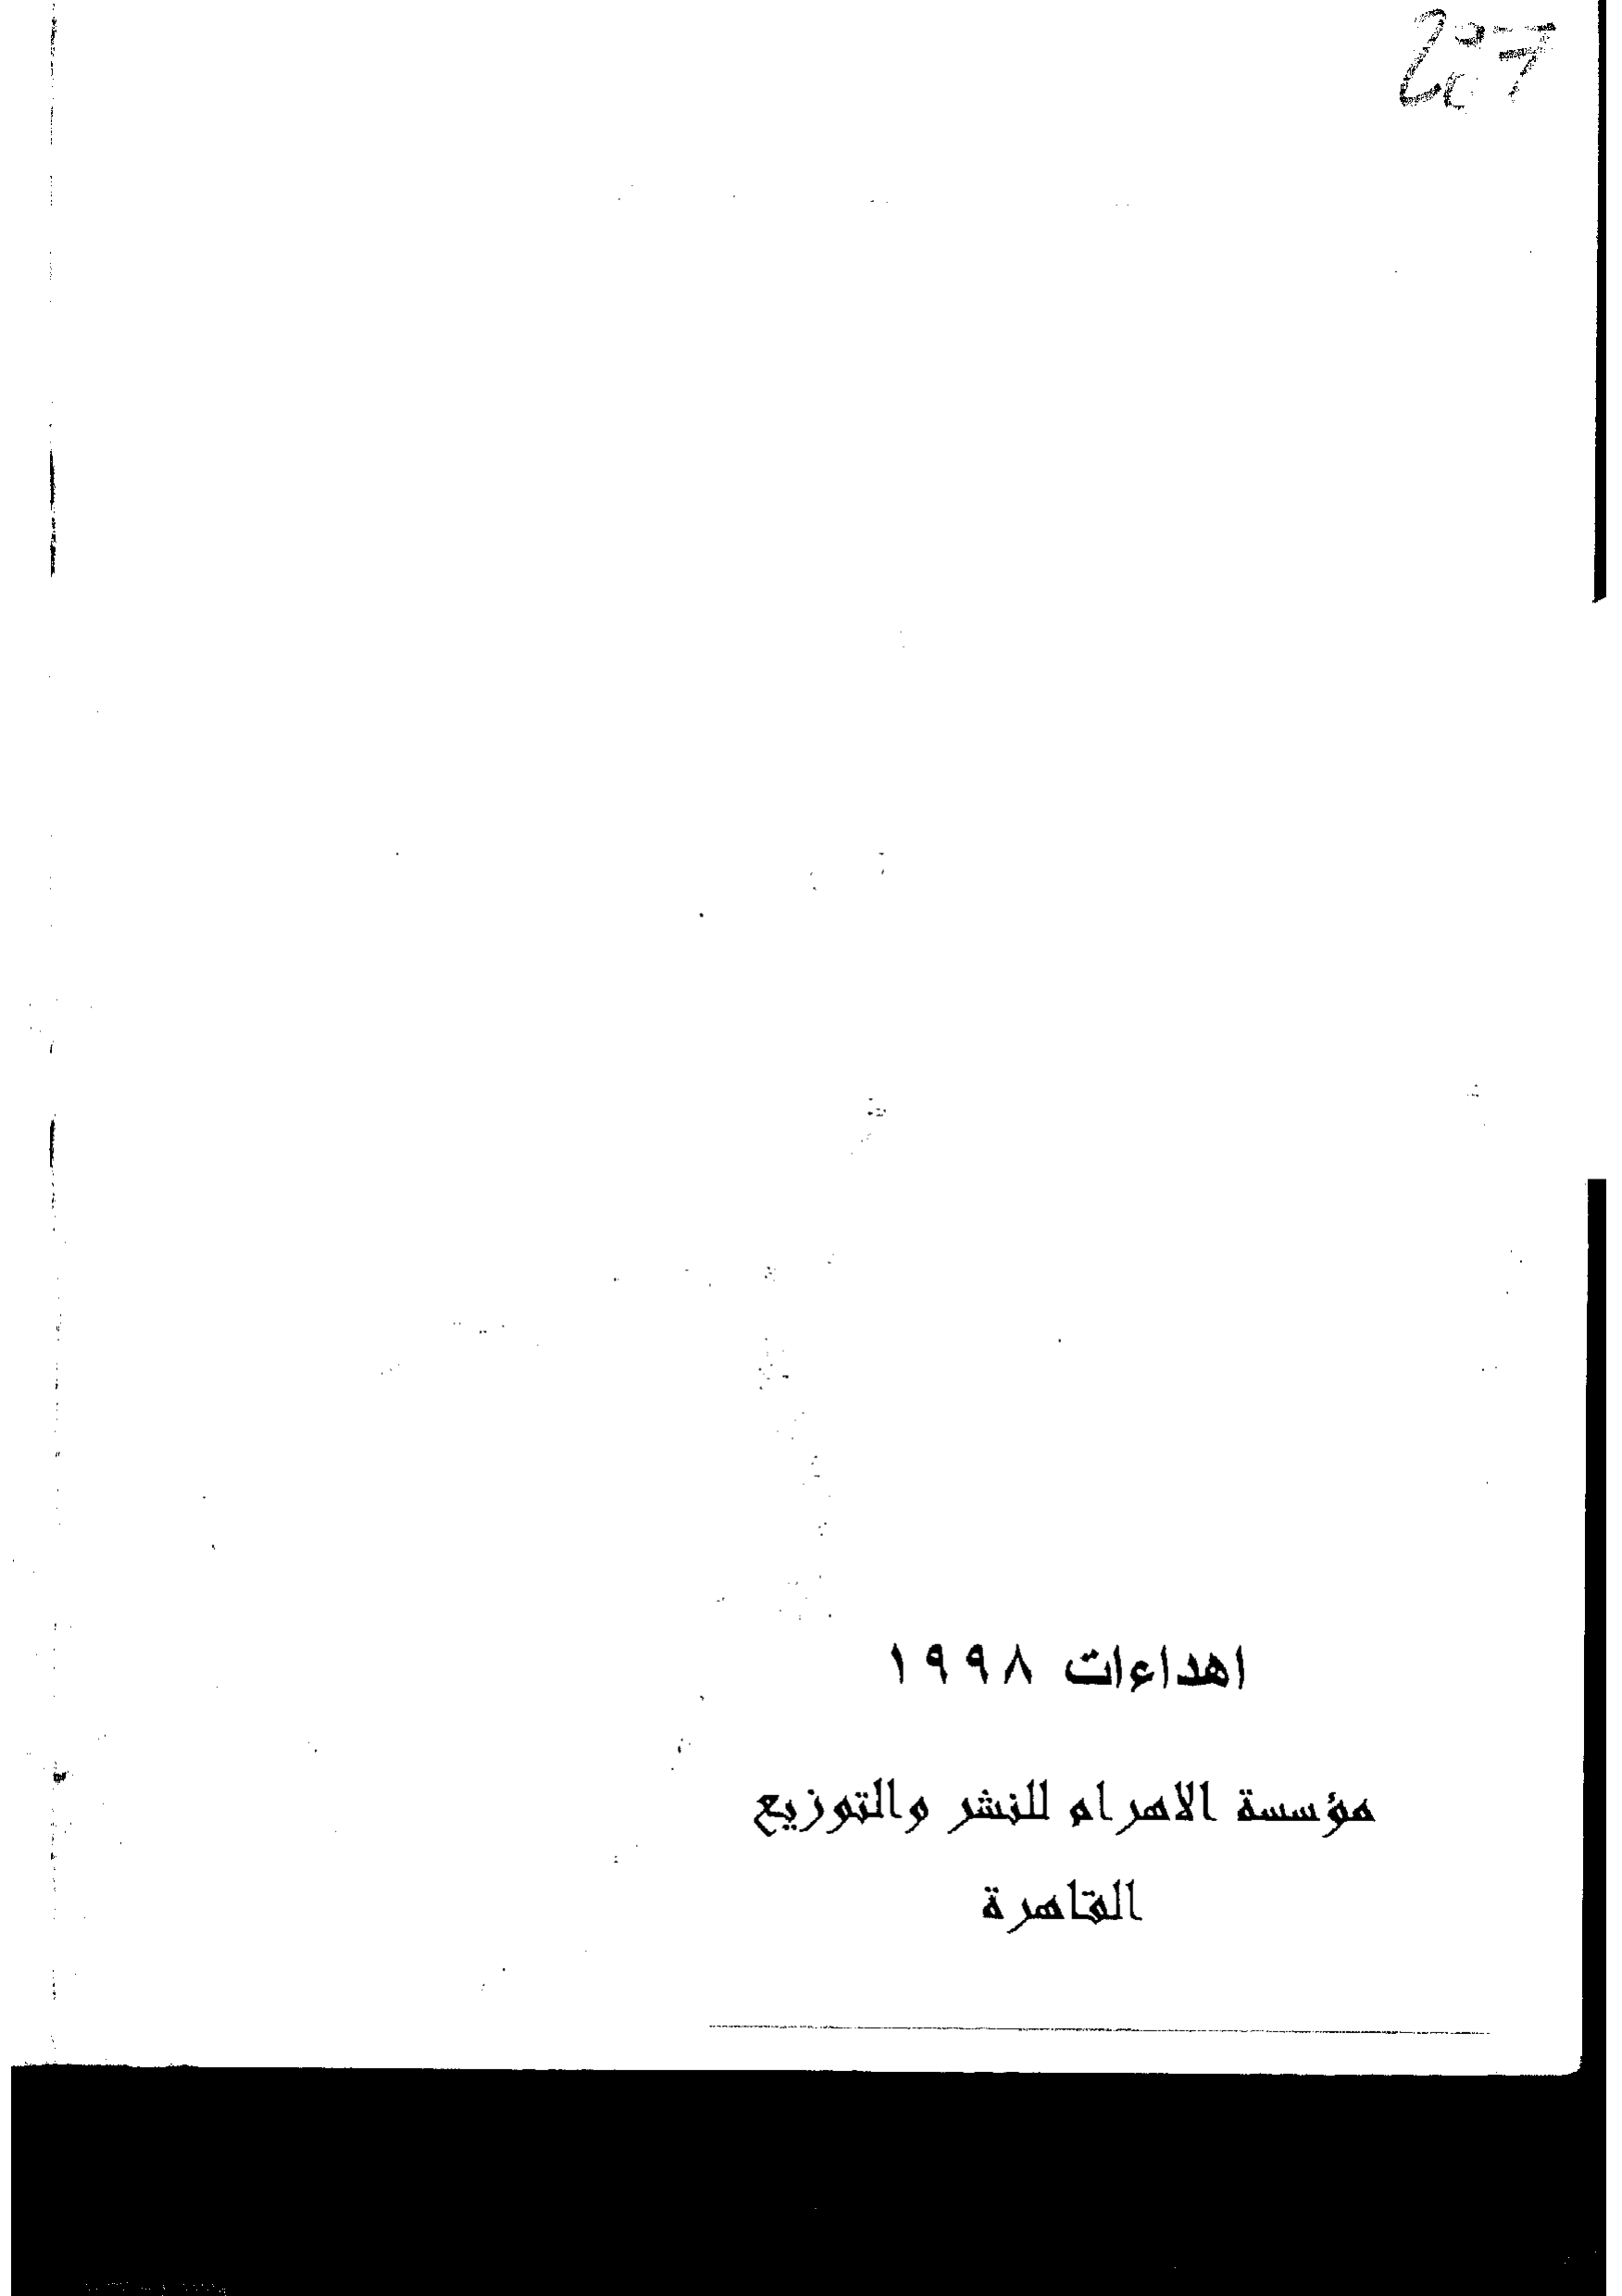 اهداءات ١٩٩٨
مؤسسة الاهرام للنشر والتوزيع
القاهرة